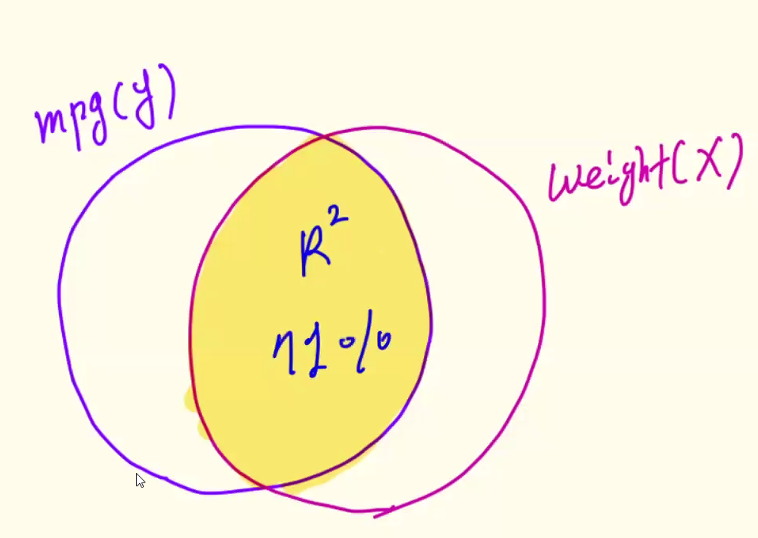 mpg(y)
weight(X)
R²
71%